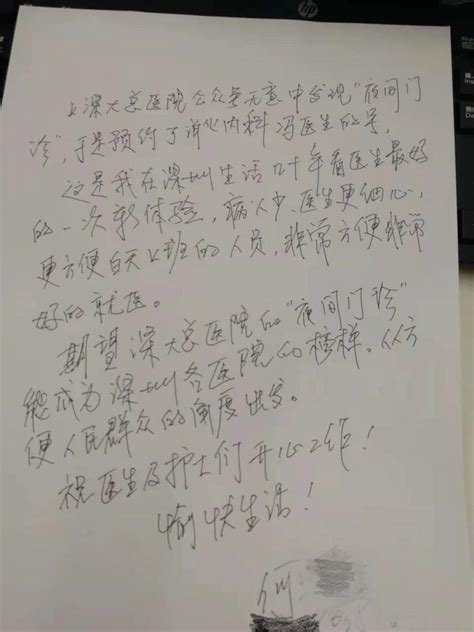 从深大总医院公众号无意中发现“夜间门
诊”,于是预约了消化内科冯医生的号,
这是我在深圳生活几十年看医生最好
的一次新体验,病人少、医生更细心,
更方便白天上班的人员,非常方便非常
好的就医。
期望深大总医院的“夜间门诊”
能成为深圳各医院的榜样。从方
便人民群众的角度出发。
祝医生及护士们开心工作!
愉快生活!
何
hp